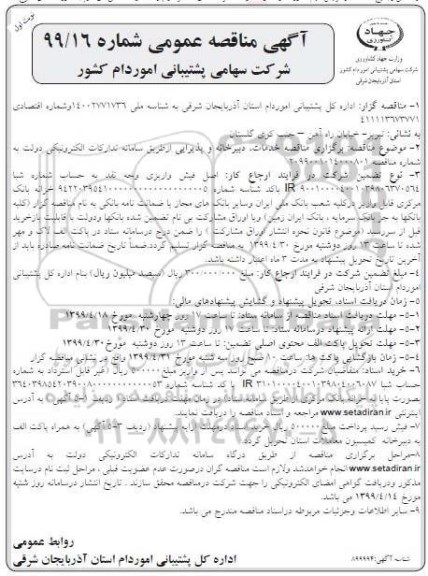 نوبت اول
جهاد کشاورزی
وزارت جهاد کشاورزی
شرکت سهامی پشتیبانی امور دام کشور
استان آذربایجان شرقی
آگهی مناقصه عمومی شماره ۹۹/۱۶
شرکت سهامی پشتیبانی اموردام کشور
۱- مناقصه گزار: اداره کل پشتیبانی اموردام استان آذربایجان شرقی به شناسه ملی ۱۴۰۰۲۷۷۱۷۳۶ وشماره اقتصادی
۴۱۱۱۱۳۶۷۳۷۷۱
به نشانی: تبریز- خیابان راه آهن – جنب کوی گلستان
۲- موضوع مناقصه: برگزاری مناقصه خدمات، دبیرخانه و پذیرایی ازطریق سامانه تدارکات الکترونیکی دولت به
شماره مناقصه
۳- نوع تضمین شرکت در فرایند ارجاع کار: اصل فیش واریزی وجه نقد به حساب شماره شبا
IR باکد شناسه شماره خزانه بانک
مرکزی قابل واریز درکلیه شعب بانک ملی ایران وسایر بانک های مجاز یا ضمانت نامه بانکی به نام مناقصه گزار (کلیه
بانکها به جز بانک سرمایه ، بانک ایران زمین) ویا اوراق مشارکت بی نام تضمین شده بانکها ودولت با قابلیت بازخرید
قبل از سررسید (موضوع قانون نحوه انتشار اوراق مشارکت) را ضمن درج درسامانه ستاد در پاکت الف لاک و مهر
شده تا ساعت ۱۳ روز دوشنبه مورخ ۱۳۹۹/۴/۳۰ به مناقصه گزار تسلیم گردد.ضمناً تاریخ ضمانت نامه صادره باید از
آخرین تاریخ تحویل پیشنهاد به مدت ۳ ماه اعتبار داشته باشد.
۴- مبلغ تضمین شرکت در فرایند ارجاع کار: مبلغ ۳۰۰/۰۰۰/۰۰۰ ریال (سیصد میلیون ریال) بنام اداره کل پشتیبانی
اموردام استان آذربایجان شرقی
۵- زمان دریافت اسناد، تحویل پیشنهاد و گشایش پیشنهادهای مالی:
۵-۱- مهلت دریافت اسناد مناقصه از سامانه ستاد: تا ساعت ۱۷ روز چهارشنبه مورخ ۱۳۹۹/۴/۱۸
۵-۲- مهلت ارائه پیشنهاد درسامانه ستاد: تا ساعت ۱۷ روز دوشنبه مورخ ۱۳۹۹/۴/۳۰
۵-۳- مهلت تحویل پاکت الف محتوی اصلی تضمین: تا ساعت ۱۳ روز دوشنبه مورخ ۱۳۹۹/۴/۳۰
۵-۴- زمان بازگشایی پاکت ها: ساعت ۱۰ صبح روز سه شنبه مورخ ۱۳۹۹/۴/۳۱ واقع در نشانی مناقصه گزار
۶- خرید اسناد: متقاضیان شرکت درمناقصه می توانند پس از واریز مبلغ ۵۰۰۰۰۰ ریال (غیر قابل استرداد به شماره
حساب شبا IR با کد شناسه شماره
آدرس اینترنتی www.setadiran.ir مراجعه و اسناد مناقصه را دریافت نمایند.
۷- فیش رسید پرداخت مبلغ ۵۰۰۰۰۰ ریال
دبیرخانه کمیسیون معاملات استان تحویل گردد.
۸-مراحل برگزاری مناقصه از طریق درگاه سامانه تدارکات الکترونیکی دولت به آدرس
www.setadiran.ir انجام خواهدشد ولازم است مناقصه گران درصورت عدم عضویت قبلی ، مراحل ثبت نام درسایت
مذکور ودریافت گواهی امضای الکترونیکی را جهت شرکت درمناقصه محقق سازند . تاریخ انتشار درسامانه روز شنبه
مورخ ۱۳۹۹/۴/۱۴ می باشد.
۹- سایر اطلاعات وجزئیات مربوطه دراسناد مناقصه مندرج می باشد.
روابط عمومی
اداره کل پشتیبانی اموردام استان آذربایجان شرقی
شناسه آگهی: ۸۹۹۹۹۴